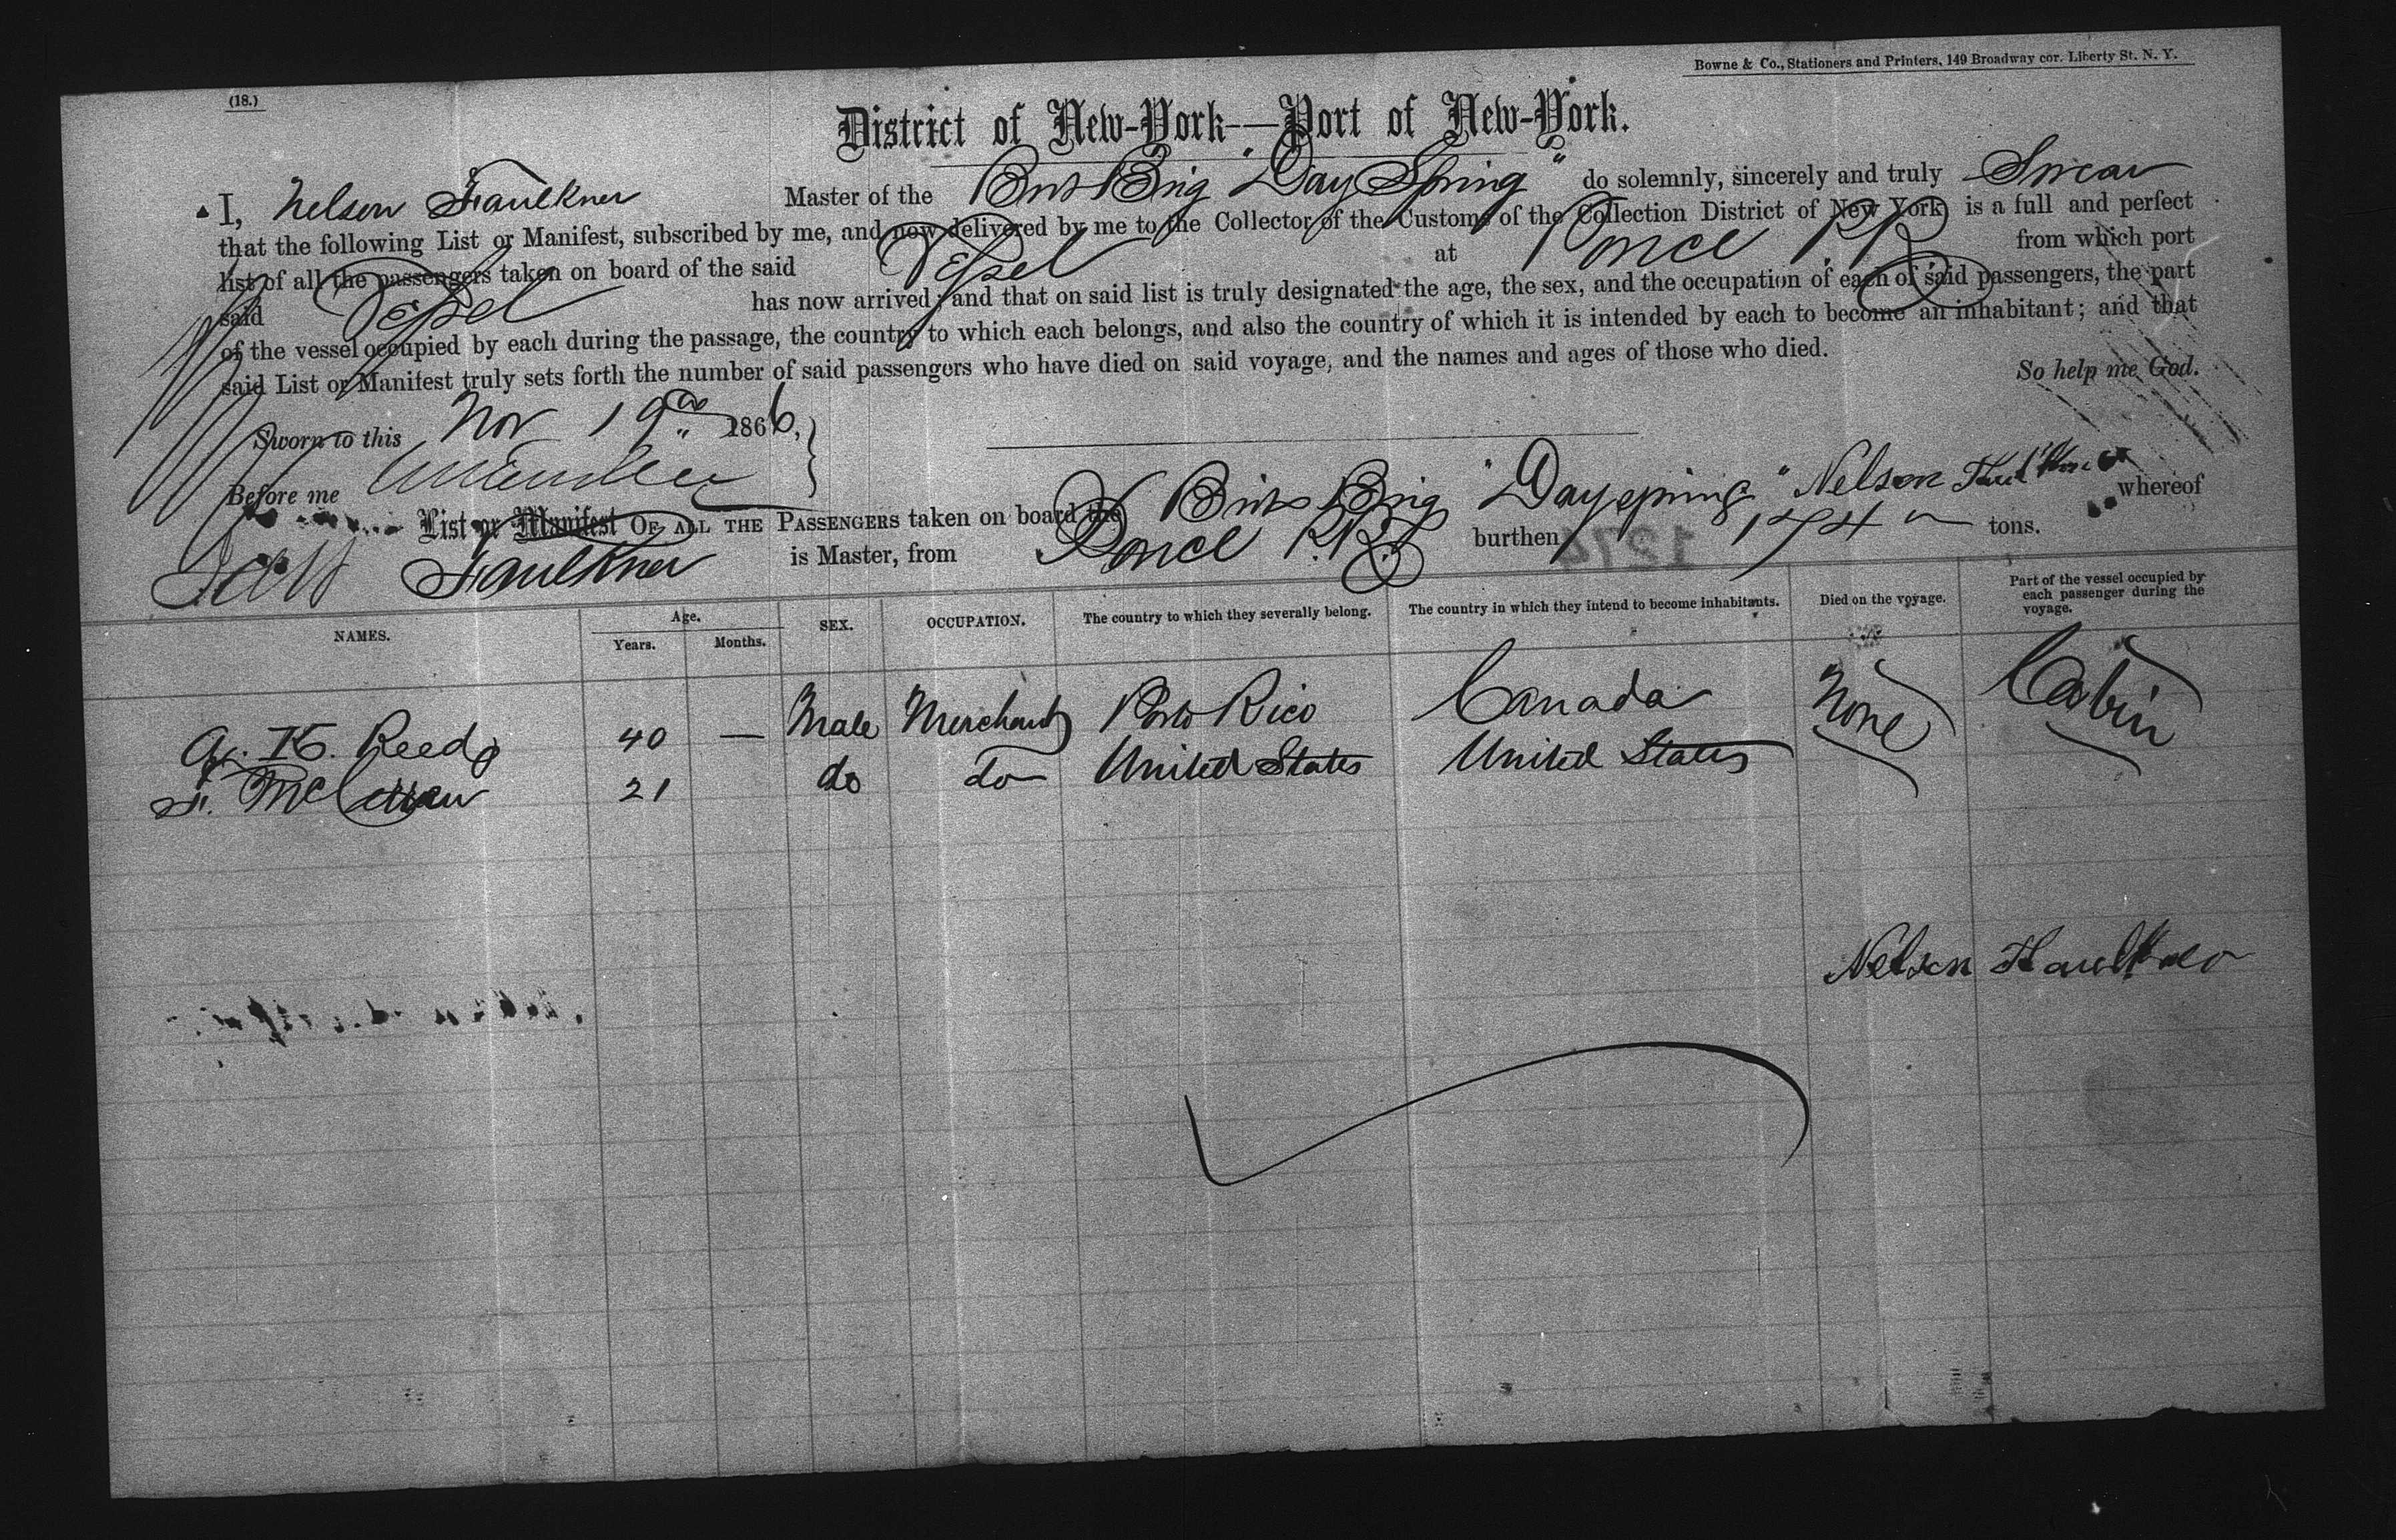 (18.)
Bowne & Co., Stationers and Printers, 149 Broadway cor. Liberty St. N. Y.
District of New-York—Port of New-York.
I, Nelson Faulkner Master of the Brit Brig "Day Spring" do solemnly, sincerely and truly Swear
that the following List or Manifest, subscribed by me, and now delivered by me to the Collector of the Customs of the Collection District of New York, is a full and perfect
list of all the passengers taken on board of the said Vessel at Ponce P.R from which port
said Vessel has now arrived; and that on said list is truly designated the age, the sex, and the occupation of each of said passengers, the part
of the vessel occupied by each during the passage, the country to which each belongs, and also the country of which it is intended by each to become an inhabitant; and that
said List or Manifest truly sets forth the number of said passengers who have died on said voyage, and the names and ages of those who died.
So help me God.
Sworn to this Nov 19 1866,
Before me
List or Manifest OF ALL THE PASSENGERS taken on board the Brit Brig "Dayspring" Nelson Faulkner whereof
Faulkner is Master, from Ponce P.R. burthen 174 tons.
1274
NAMES.
Age.
Years.
Months.
SEX.
OCCUPATION.
The country to which they severally belong.
The country in which they intend to become inhabitants.
Died on the voyage.
Part of the vessel occupied by each passenger during the voyage.
Reed 40 — Male Merchant Porto Rico Canada None Cabin
21 do do United States United States
Nelson Faulkner